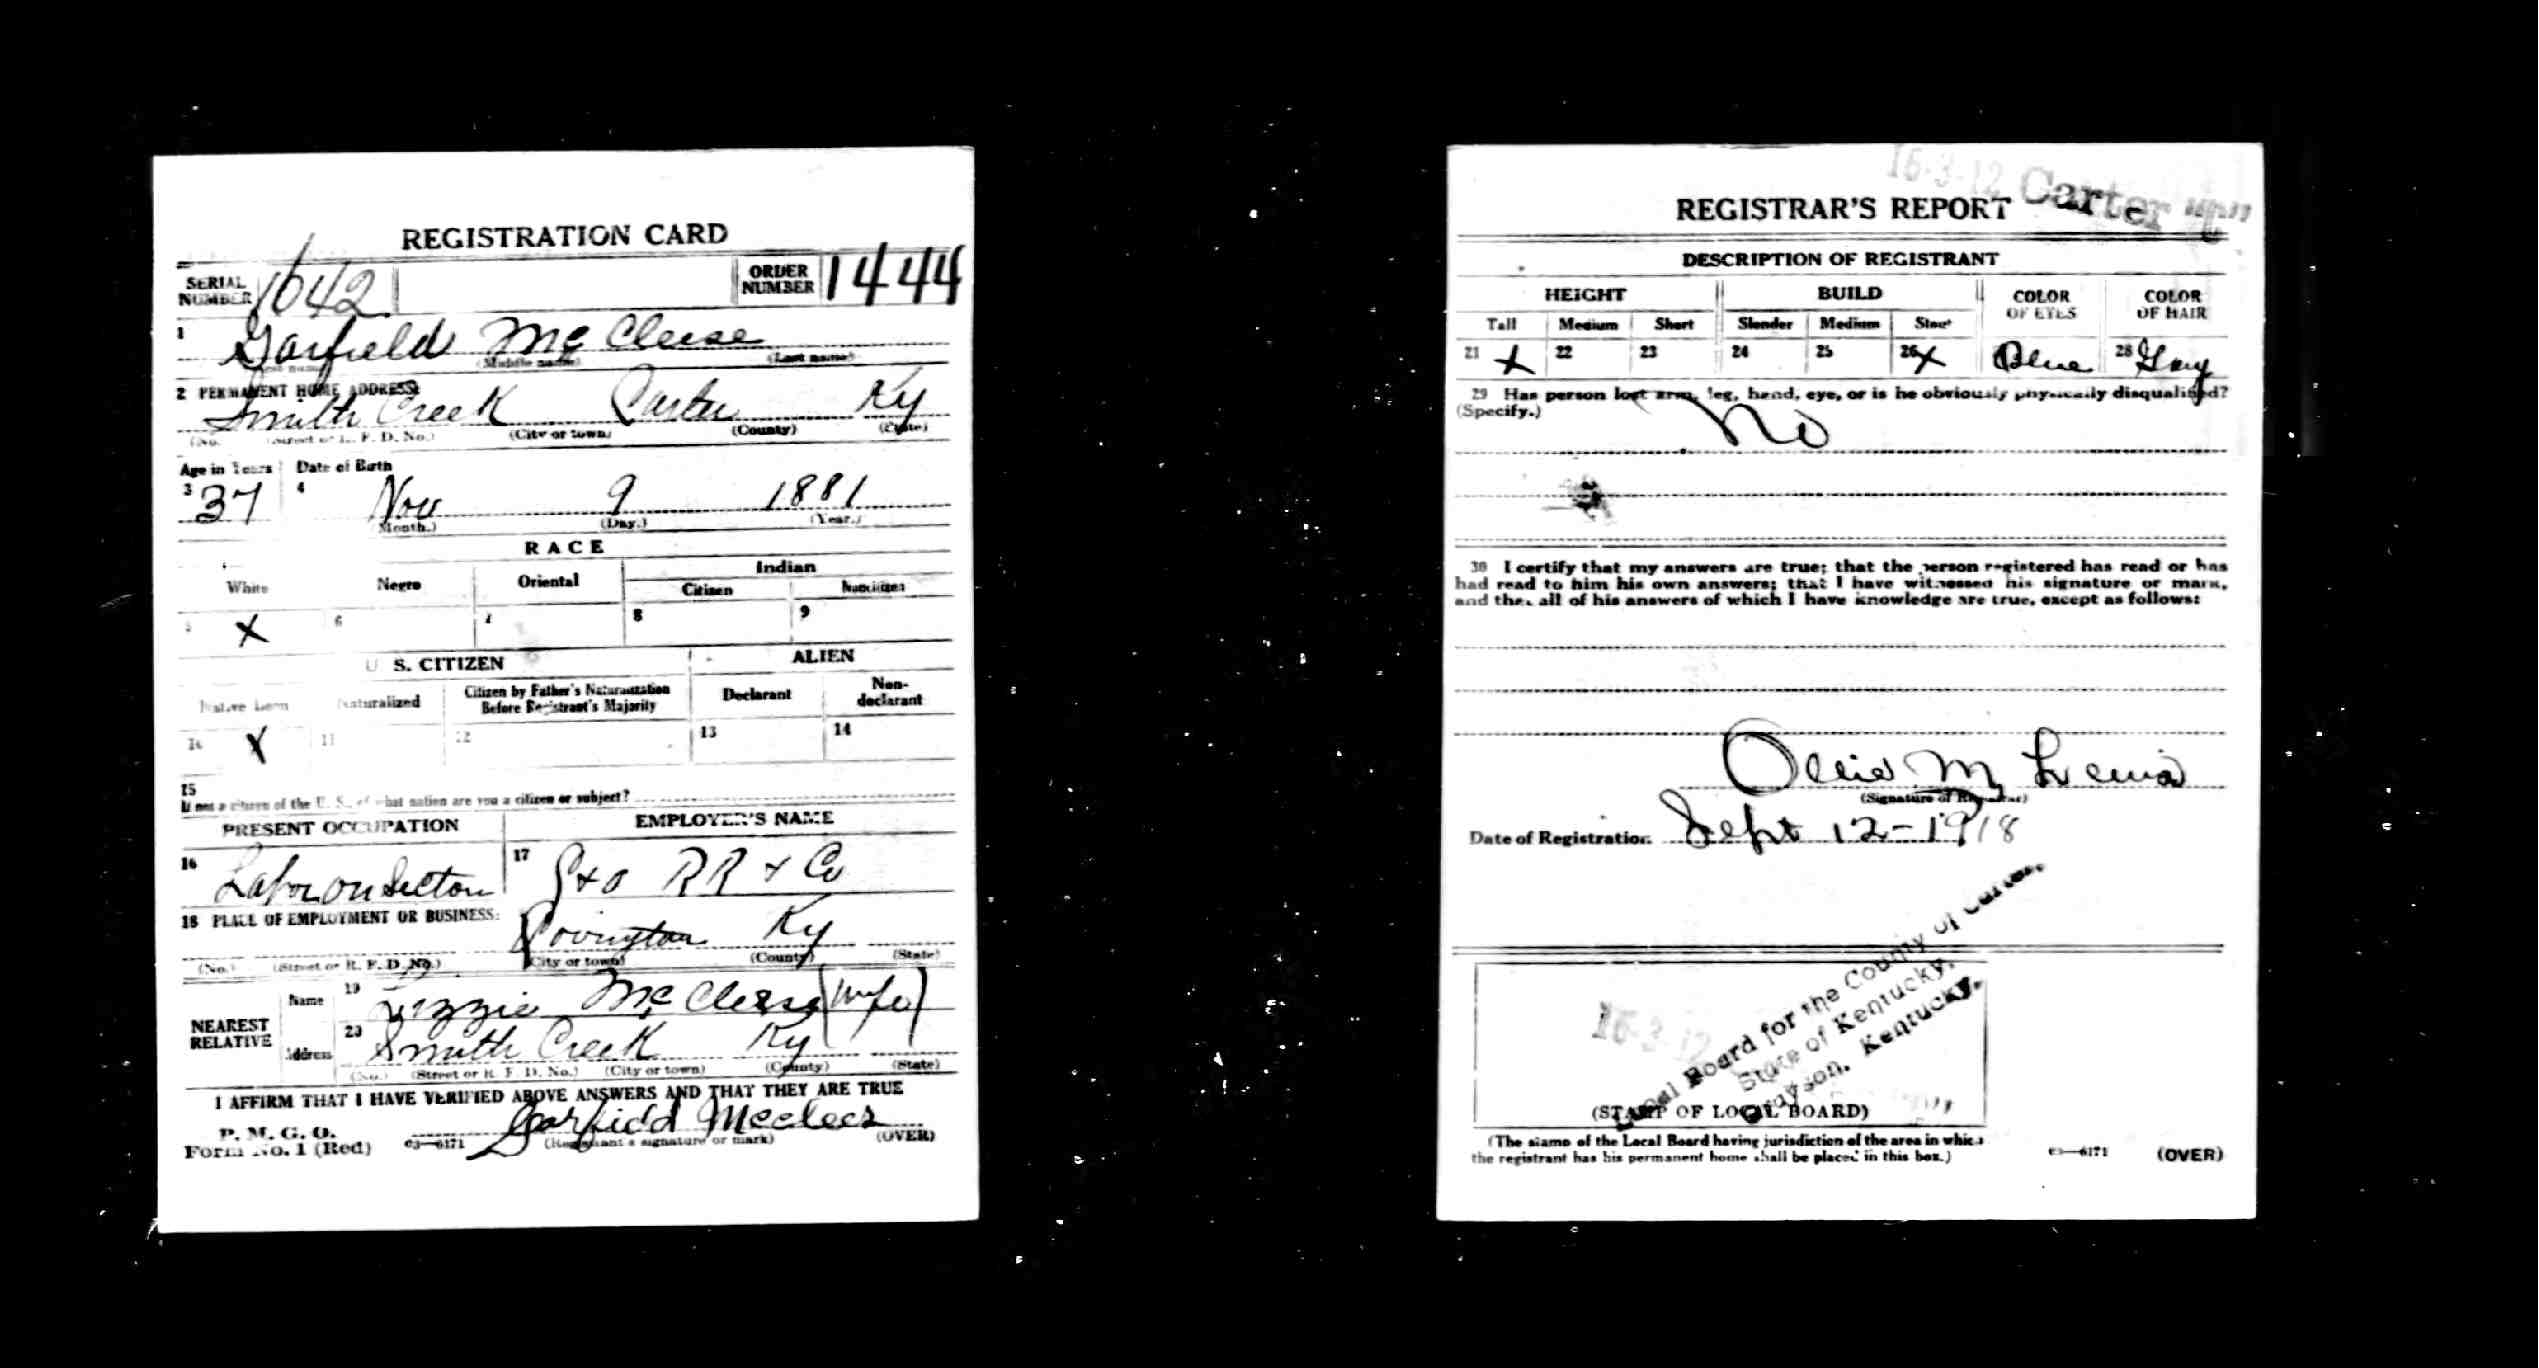 REGISTRATION CARD
SERIAL NUMBER 1642 ORDER NUMBER 1444
1 Garfield McCleese
(Middle name) (Last name)
2 PERMANENT HOME ADDRESS:
Smith Creek Carter Ky
(No.) (Street or R. F. D. No.) (City or town) (County) (State)
Age in Years Date of Birth
3 37 4 Nov 9 1881
(Month.) (Day.) (Year.)
RACE
White Negro Oriental Indian
Citizen Noncitizen
5 X 6 7 8 9
U. S. CITIZEN ALIEN
Native Born Naturalized Citizen by Father's Naturalization Before Registrant's Majority Declarant Non-declarant
10 X 11 12 13 14
15
If not a citizen of the U. S., of what nation are you a citizen or subject?
PRESENT OCCUPATION EMPLOYER'S NAME
16 Labor on Section 17 RR & Co
18 PLACE OF EMPLOYMENT OR BUSINESS:
Covington Ky
(No.) (Street or R. F. D. No.) (City or town) (County) (State)
NEAREST RELATIVE Name 19 Lizzie McCleese (Wife)
Address 20 Smith Creek Ky
(No.) (Street or R. F. D. No.) (City or town) (County) (State)
I AFFIRM THAT I HAVE VERIFIED ABOVE ANSWERS AND THAT THEY ARE TRUE
P. M. G. O.
Form No. 1 (Red) 03—6171 Garfield Mcclees
(Registrant's signature or mark) (OVER)
16-3-12 Carter "C"
REGISTRAR'S REPORT
DESCRIPTION OF REGISTRANT
HEIGHT BUILD COLOR OF EYES COLOR OF HAIR
Tall Medium Short Slender Medium Stout
21 X 22 23 24 25 26 X Blue 28 Gray
29 Has person lost arm, leg, hand, eye, or is he obviously physically disqualified?
(Specify.)
No
30 I certify that my answers are true; that the person registered has read or has
had read to him his own answers; that I have witnessed his signature or mark,
and that all of his answers of which I have knowledge are true, except as follows:
Ollie M Lewis
(Signature of Registrar)
Date of Registration Sept 12-1918
16-3-12
Local Board for the County of Carter,
State of Kentucky,
Grayson, Kentucky.
(STAMP OF LOCAL BOARD)
(The stamp of the Local Board having jurisdiction of the area in which
the registrant has his permanent home shall be placed in this box.)
03—6171 (OVER)